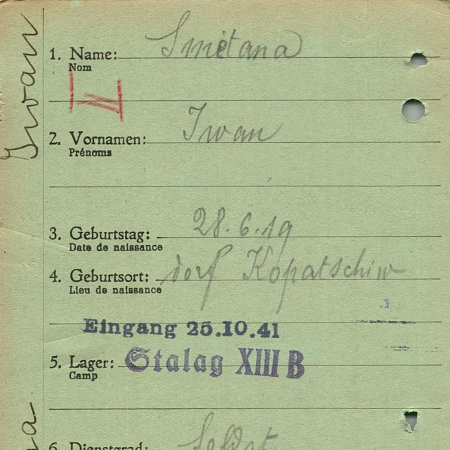 1. Name: Smetana
Nom
II
Iwan
2. Vornamen: Iwan
Prénoms
3. Geburtstag: 28.6.19
Date de naissance
4. Geburtsort: dorf Kopatschiw
Lieu de naissance
Eingang 25.10.41
5. Lager: Stalag XIII B
Camp
6. Dienstgrad: Soldat